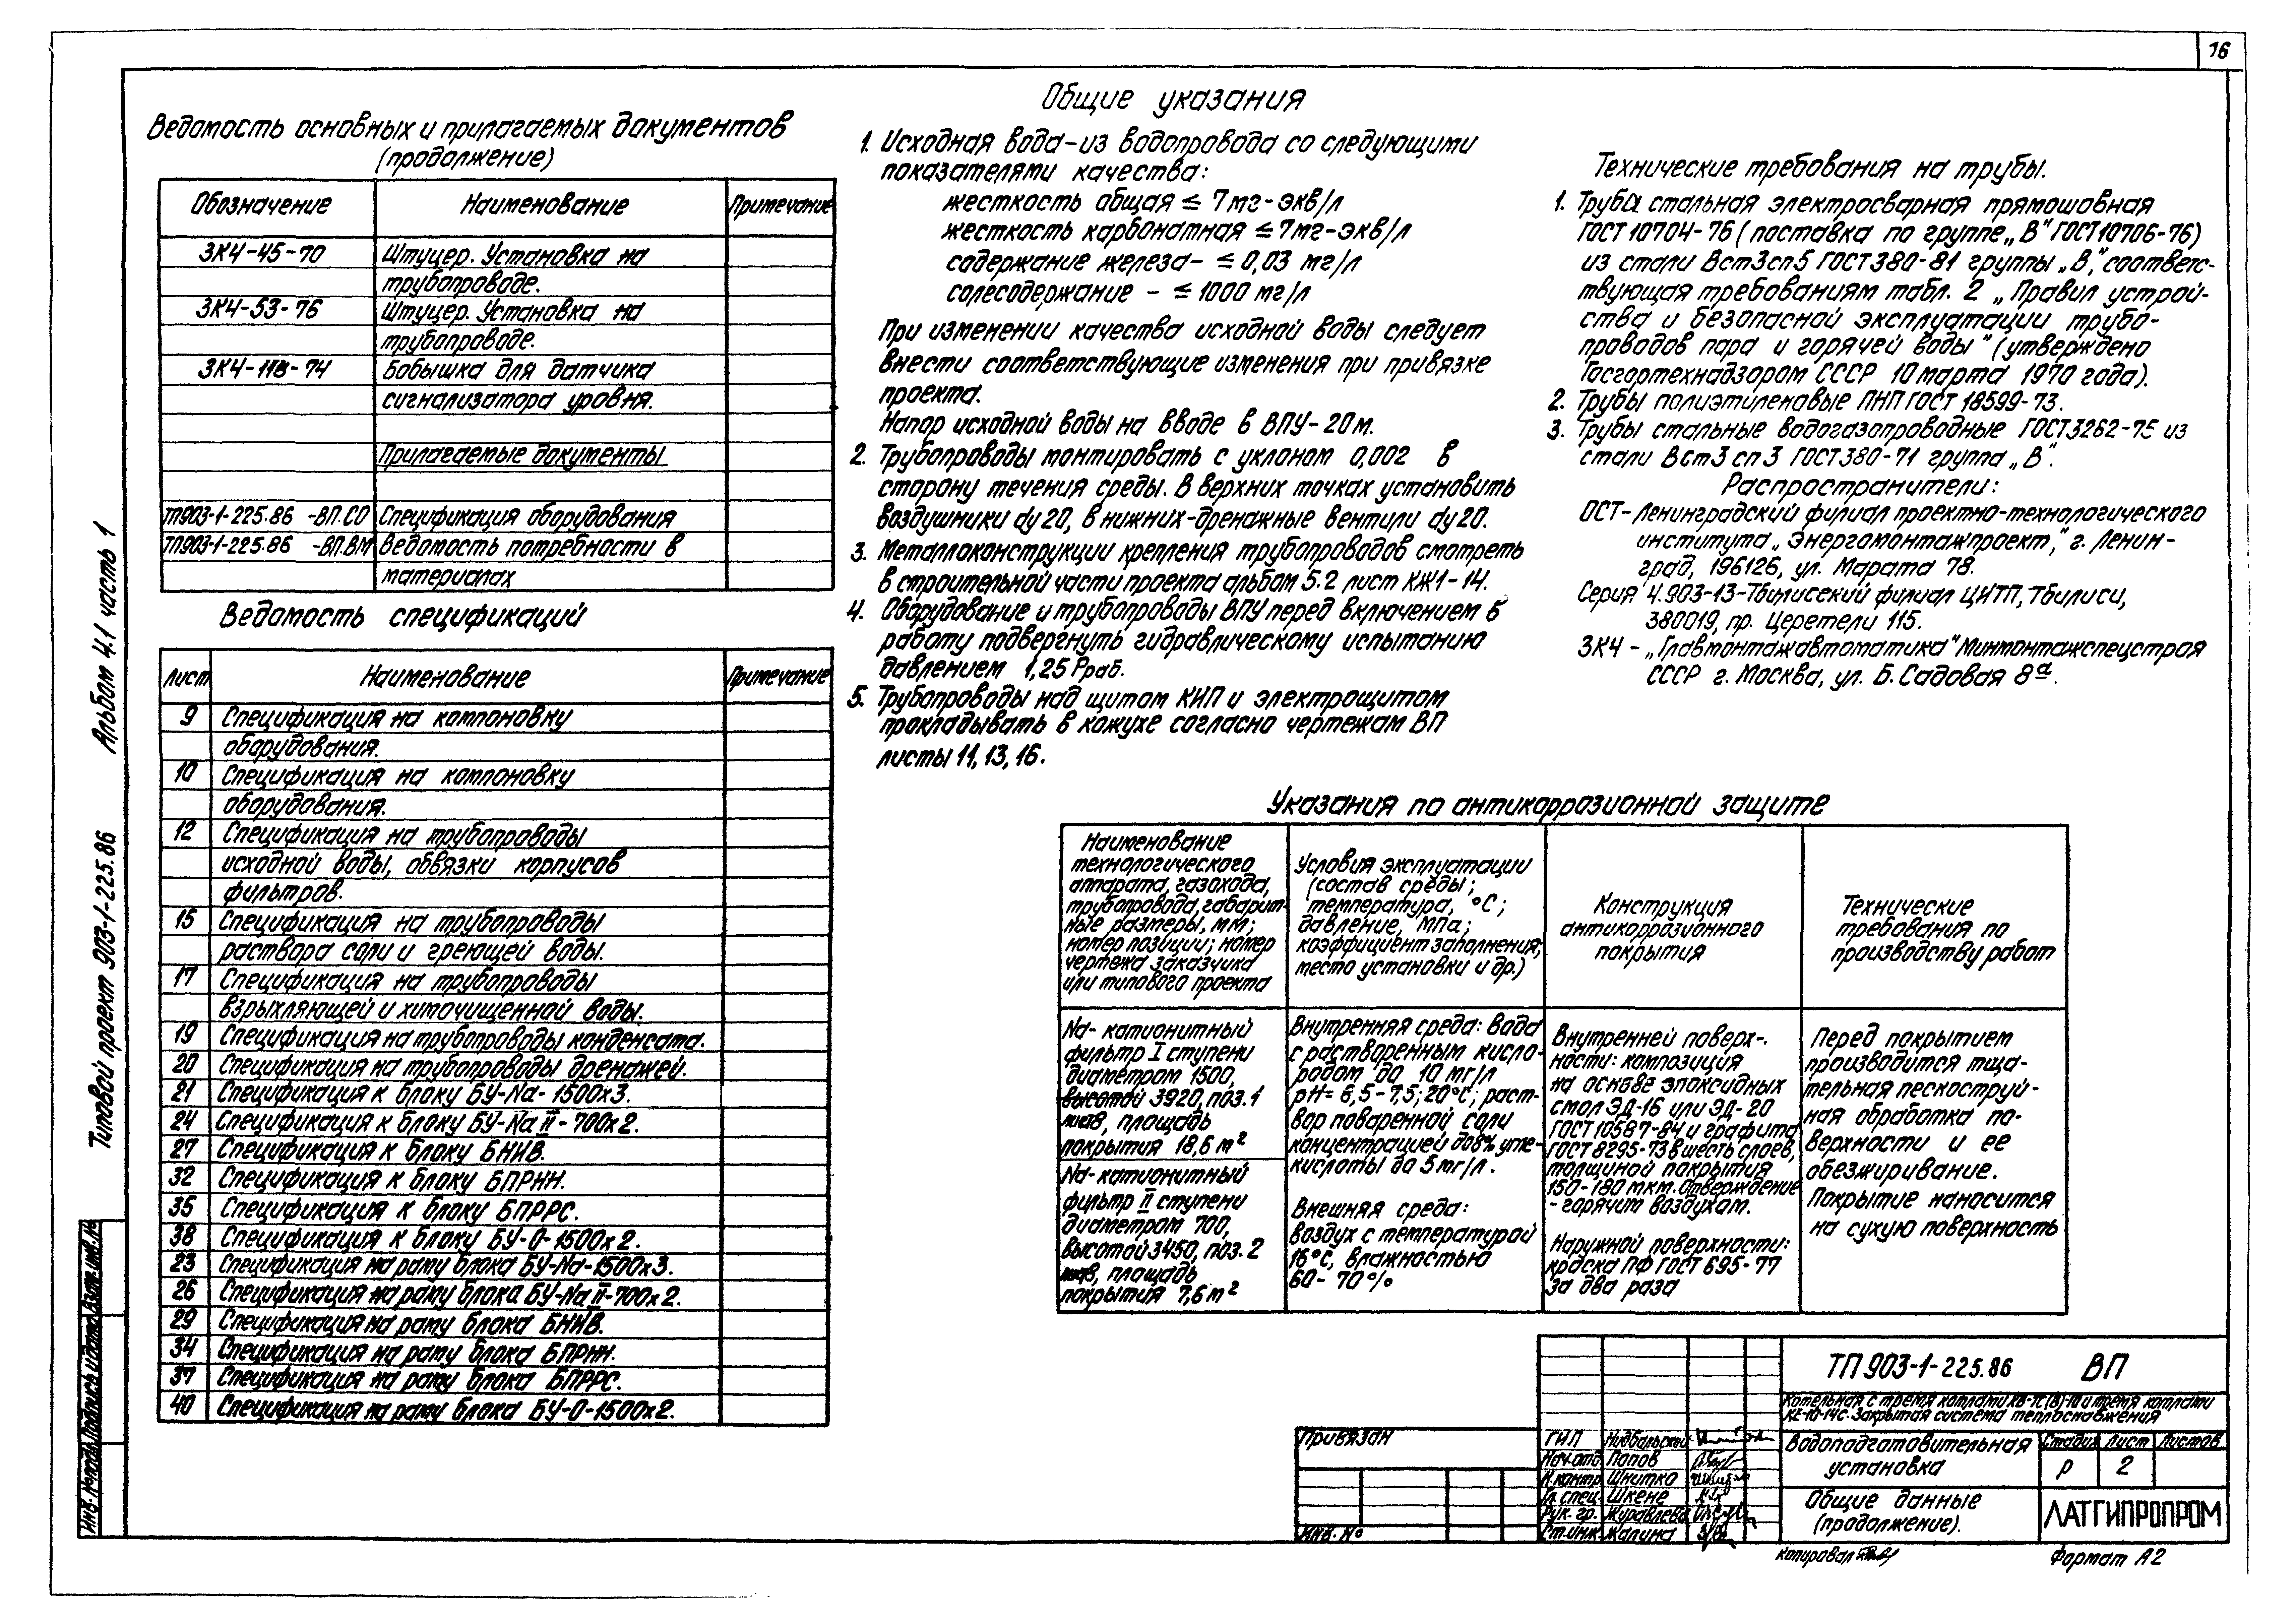 16
Ведомость основных и прилагаемых документов
(продолжение)
Обозначение Наименование Примечание
ЗК4-45-70 Штуцер. Установка на
трубопроводе.
ЗК4-53-76 Штуцер. Установка на
трубопроводе.
ЗК4-118-74 Бобышка для датчика
сигнализатора уровня.
Прилагаемые документы
ТП903-1-225.86 -ВП.СО Спецификация оборудования
ТП903-1-225.86 -ВП.ВМ Ведомость потребности в
материалах
Ведомость спецификаций
Лист Наименование Примечание
9 Спецификация на компоновку
оборудования.
10 Спецификация на компоновку
оборудования.
12 Спецификация на трубопроводы
исходной воды, обвязки корпусов
фильтров.
15 Спецификация на трубопроводы
раствора соли и греющей воды.
17 Спецификация на трубопроводы
взрыхляющей и химочищенной воды.
19 Спецификация на трубопроводы конденсата.
20 Спецификация на трубопроводы дренажей.
21 Спецификация к блоку БУ-Na-1500х3.
24 Спецификация к блоку БУ-Na II-700х2.
27 Спецификация к блоку БНИВ.
32 Спецификация к блоку БПРНН.
35 Спецификация к блоку БПРРС.
38 Спецификация к блоку БУ-О-1500х2.
23 Спецификация на раму блока БУ-Na-1500х3.
26 Спецификация на раму блока БУ-Na II-700х2.
29 Спецификация на раму блока БНИВ.
34 Спецификация на раму блока БПРНН.
37 Спецификация на раму блока БПРРС.
40 Спецификация на раму блока БУ-О-1500х2.
Общие указания
1. Исходная вода-из водопровода со следующими
показателями качества:
жесткость общая ≤ 7мг-экв/л
жесткость карбонатная ≤ 7мг-экв/л
содержание железа- ≤ 0,03 мг/л
солесодержание - ≤ 1000 мг/л
При изменении качества исходной воды следует
внести соответствующие изменения при привязке
проекта.
Напор исходной воды на вводе в ВПУ-20м.
2. Трубопроводы монтировать с уклоном 0,002 в
сторону течения среды. В верхних точках установить
воздушники dу20, в нижних-дренажные вентили dу20.
3. Металлоконструкции крепления трубопроводов смотреть
в строительной части проекта альбом 5.2 лист КЖ1-14.
4. Оборудование и трубопроводы ВПУ перед включением в
работу подвергнуть гидравлическому испытанию
давлением 1,25 Рраб.
5. Трубопроводы над щитом КИП и электрощитом
прокладывать в кожухе согласно чертежам ВП
листы 11, 13, 16.
Технические требования на трубы.
1. Труба стальная электросварная прямошовная
ГОСТ 10704-76 (поставка по группе „В" ГОСТ10706-76)
из стали Вст3сп5 ГОСТ380-81 группы „В", соответс-
твующая требованиям табл. 2 „Правил устрой-
ства и безопасной эксплуатации трубо-
проводов пара и горячей воды" (утверждено
Госгортехнадзором СССР 10 марта 1970 года).
2. Трубы полиэтиленовые ПНП ГОСТ 18599-73.
3. Трубы стальные водогазопроводные ГОСТ3262-75 из
стали Вст3 сп3 ГОСТ380-71 группа „В".
Распространители:
ОСТ-Ленинградский филиал проектно-технологического
института „Энергомонтажпроект," г. Ленин-
град, 196126, ул. Марата 78.
Серия 4.903-13-Тбилисский филиал ЦИТП, Тбилиси,
380019, пр. Церетели 115.
ЗК4 - „Главмонтажавтоматика" Минмонтажспецстроя
СССР г. Москва, ул. Б. Садовая 8а.
Указания по антикоррозионной защите
Наименование
технологического
аппарата, газохода,
трубопровода, габарит-
ные размеры, мм;
номер позиции; номер
чертежа заказчика
или типового проекта
Условия эксплуатации
(состав среды;
температура, °С;
давление, МПа;
коэффициент заполнения;
место установки и др.)
Конструкция
антикоррозионного
покрытия
Технические
требования по
производству работ
Na-катионитный
фильтр I ступени
диаметром 1500,
высотой 3920, поз. 1
площадь
покрытия 18,6 м²
Na-катионитный
фильтр II ступени
диаметром 700,
высотой 3450, поз. 2
площадь
покрытия 7,6 м²
Внутренняя среда: вода
с растворенным кисло-
родом до 10 мг/л
рН= 6,5-7,5; 20°С; раст-
вор поваренной соли
концентрацией до8% угле-
кислоты до 5 мг/л.
Внешняя среда:
воздух с температурой
16°С, влажностью
60-70%
Внутренней поверх-
ности: композиция
на основе эпоксидных
смол ЭД-16 или ЭД-20
ГОСТ 10587-84 и графита
ГОСТ 8295-73 в шесть слоев,
толщиной покрытия
150-180 мкм. Отверждение
- горячим воздухом.
Наружной поверхности:
краска ПФ ГОСТ 695-77
за два раза
Перед покрытием
производится тща-
тельная пескоструй-
ная обработка по-
верхности и ее
обезжиривание.
Покрытие наносится
на сухую поверхность
Типовой проект 903-1-225.86 Альбом 4.1 часть 1
Инв. №подл. Подпись и дата Взам. инв. №
Привязан
Инв. №
ГИП Нидбальский
Нач. отд. Попов
Н. контр. Шнитко
Гл. спец. Шкене
Рук. гр. Журавлева
Ст. инж. Жалина
ТП 903-1-225.86 ВП
Котельная с тремя котлами КВ-ТС(В)-10 и тремя котлами
КЕ-10-14С. Закрытая система теплоснабжения
Водоподготовительная
установка
Стадия Лист Листов
Р 2
Общие данные
(продолжение).
ЛАТГИПРОПРОМ
Копировал
Формат А2